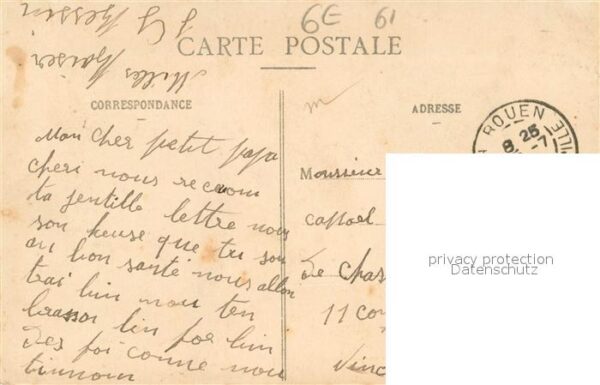 6E 61
CARTE POSTALE
CORRESPONDANCE
ADRESSE
ROUEN
8 25
Mon cher petit papa
cheri nous recevom
ta jentille lettre nous
son heuse que tu soi
an bon santé nous allon
trai bin nou ten
brasson bin for bin
Des foi comme nou
Monsieur
De Chas
11 co
Vinc
privacy protection
Datenschutz